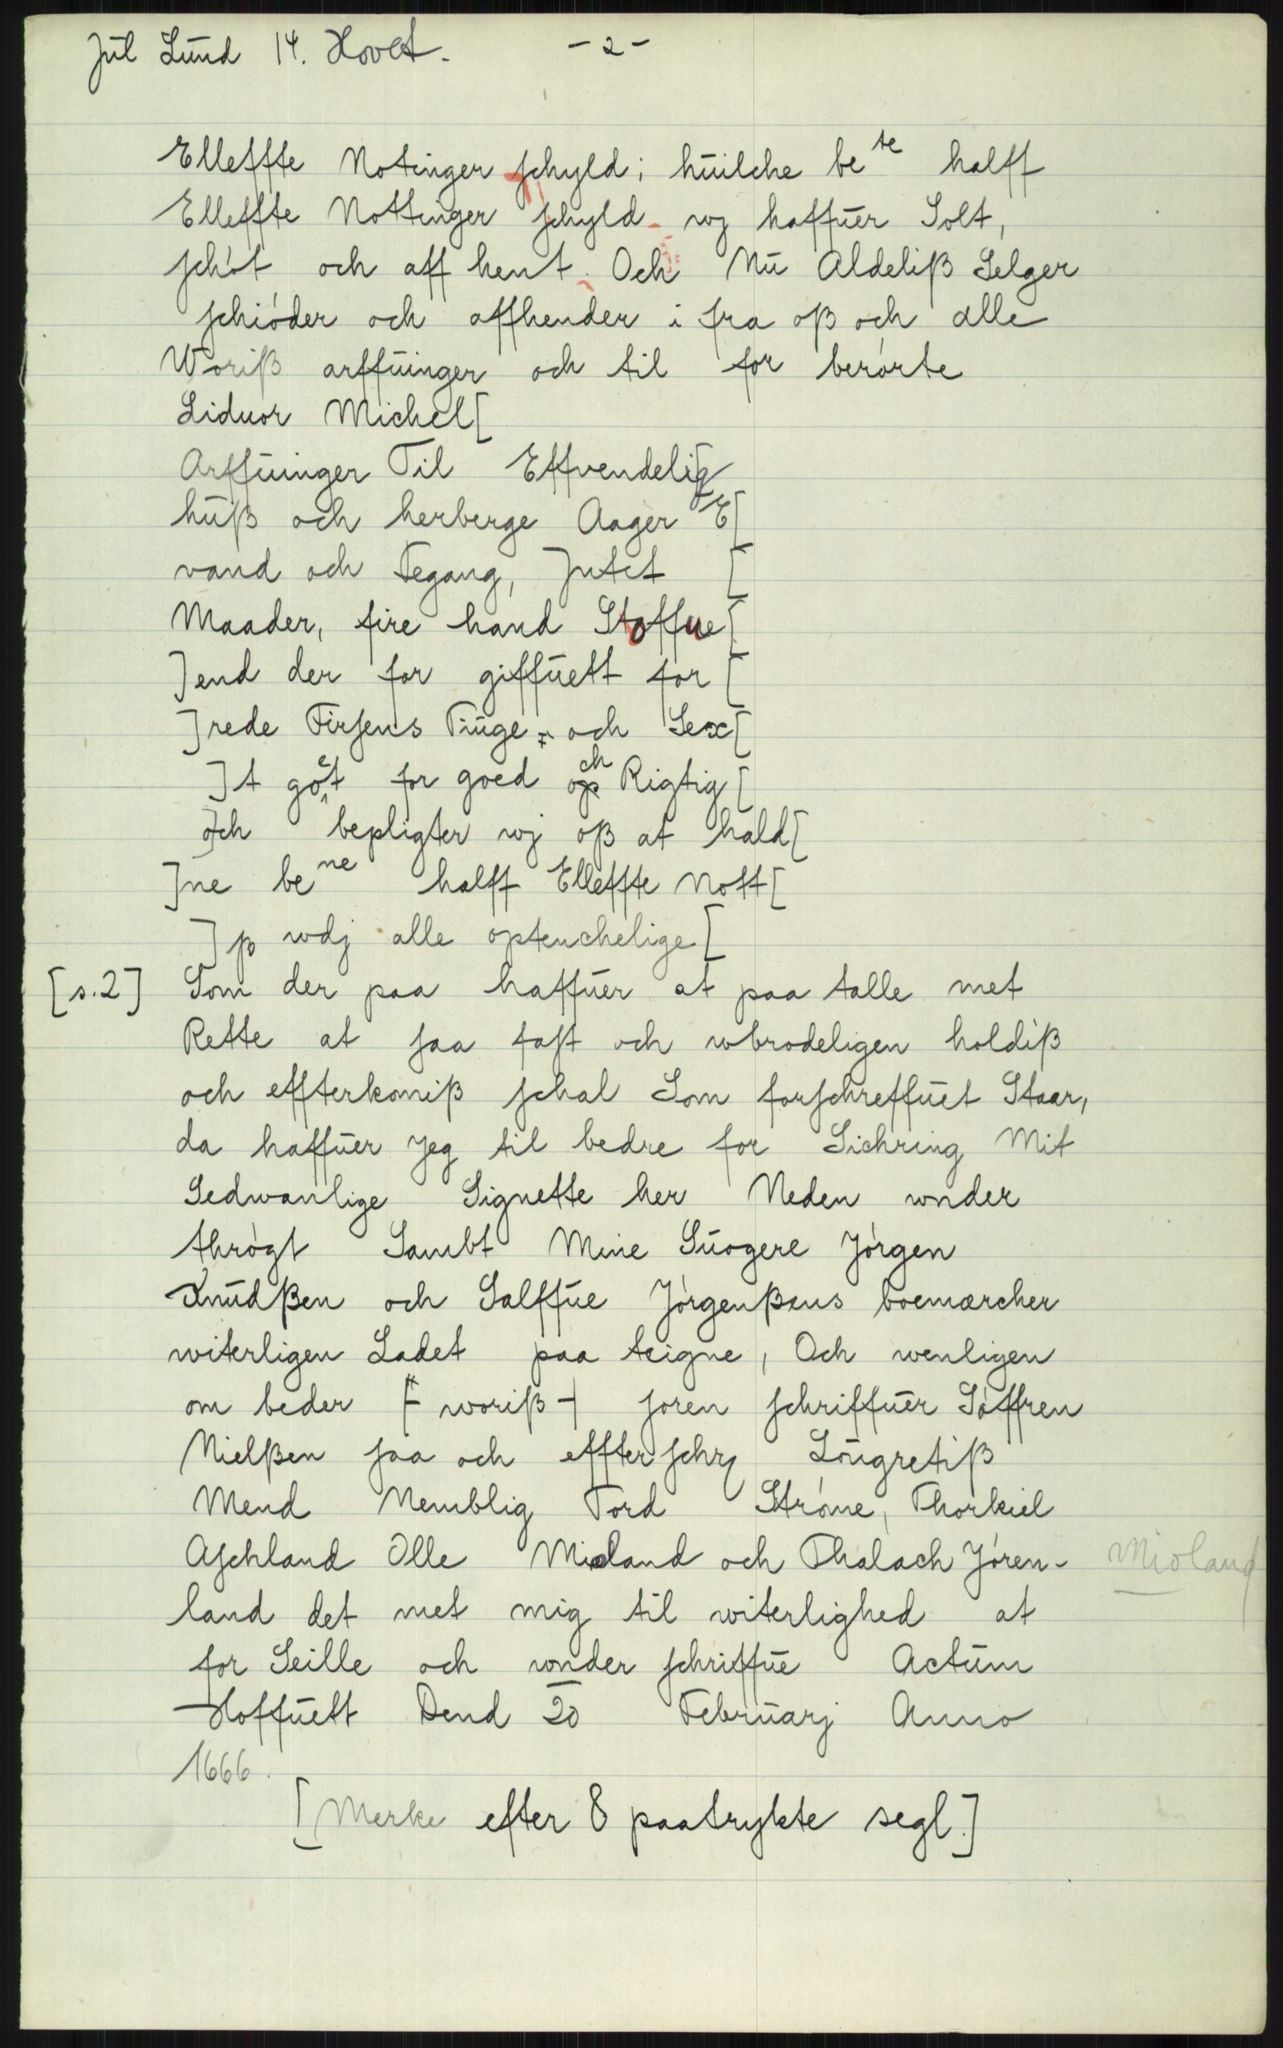 Jul Lund 14. Hovet. - 2 -
Elleffte Notinger schyld; huilche be te halff
Elleffte Nottinger schyld wj haffuer Solt,
schøt och aff hent. Och Nu Aldeliß Selger
schiøder och affhender i fra oß och alle
Woriß arffuinger och til for berørte
Liduor Michel[
Arffuinger Til Effvendelig
huß och herberge Aager E[
vand och Fegang, Jntet [
Maader, fire hand Stoffue[
]end der for giffuett for [
]rede Firsens Tiuge och Sex[
]t goet for goed och Rigtig [
och bepligter wj oß at hald[
]ne be ne halff Elleffte Nott[
]ß wdj alle optenchelige[
[s.2] Som der paa haffuer at paa talle met
Rette at saa fast och wbrodeligen holdiß
och effterkomiß schal Som forschreffuet Staar,
da haffuer Jeg til bedre for Sichring Mit
Sedwanlige Signette her Neden wnder
thrøgt Sambt Mine Suogere Jørgen
Knudßen och Salffue Jørgenßens boemærcher
witerligen Ladet paa teigne, Och wenligen
om beder [- woriß -] soren schriffuer Søffren
Nielßen saa och effterschr Lougretiß
Mend Nemblig Tord Strøme, Thorkiel
Aschland Olle Mioland och Thalach Jøren- Mioland
land det met mig til witerlighed at
for Seille och wnder schriffue Actum
Hoffuett Dend 20 Februarj Anno
1666.
[Merke efter 8 paatrykte segl.]